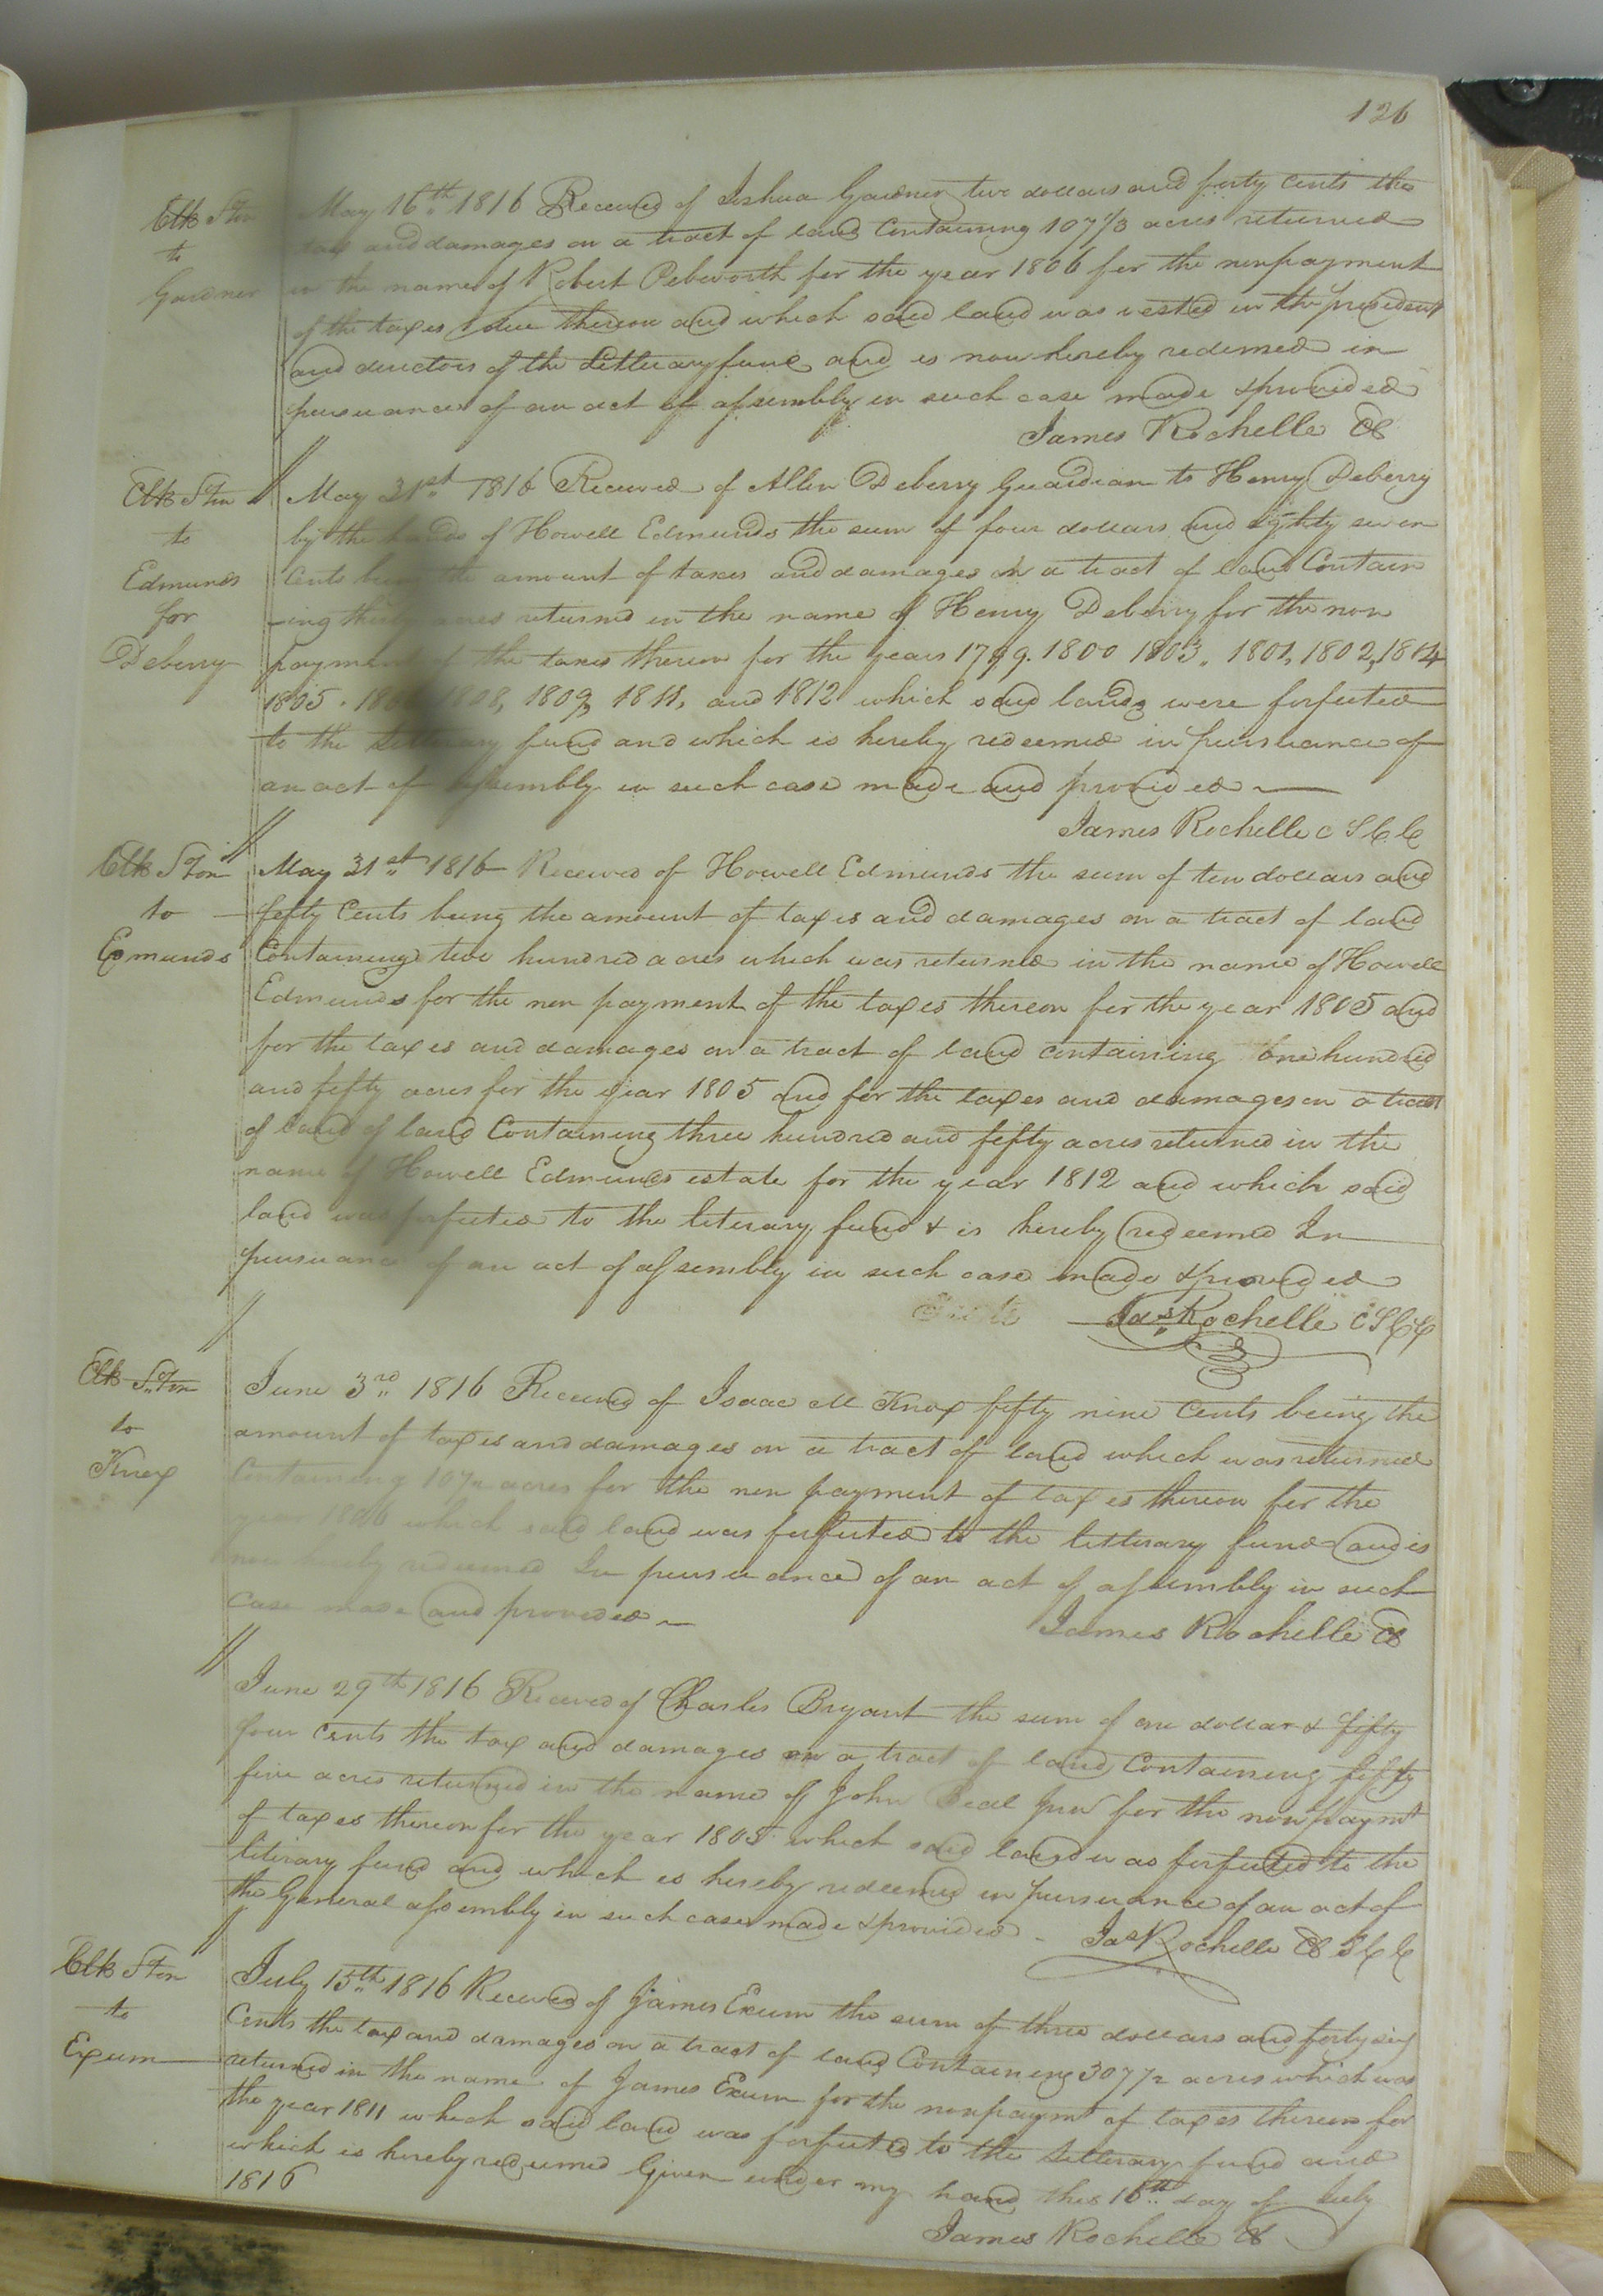 126
Clk Ston
to
Gardner
May 16th 1816 Received of Joshua Gardner two dollars and forty cents the
tax and damages on a tract of land Containing 107 1/3 acres returned
in the name of Robert Pebworth for the year 1806 for the nonpayment
of the taxes due thereon and which said land was vested in the president
and directors of the Litterary fund and is now hereby redeemed in
pursuance of an act of assembly in such case made & provided
James Rochelle Clk
Clk Ston
to
Edmunds
for
Deberry
May 31st 1816 Received of Allen Deberry Guardian to Henry Deberry
by the hands of Howell Edmunds the sum of four dollars and eighty seven
Cents being the amount of taxes and damages on a tract of land Contain
-ing thirty acres returned in the name of Henry Deberry for the non
payment of the taxes thereon for the years 1799. 1800 1803. 1801, 1802, 1804
1805. 1808, 1809, 1811, and 1812 which said lands were forfeited
to the Litterary fund and which is hereby redeemed in pursuance of
an act of assembly in such case made and provided
James Rochelle C S C C
Clk Ston
to
Edmunds
May 31st 1816 Received of Howell Edmunds the sum of ten dollars and
fifty Cents being the amount of taxes and damages on a tract of land
Containing two hundred acres which was returned in the name of Howell
Edmunds for the non payment of the taxes thereon for the year 1805 and
for the taxes and damages on a tract of land containing one hundred
and fifty acres for the year 1805 and for the taxes and damages on a tract
of land of land Containing three hundred and fifty acres returned in the
name of Howell Edmunds estate for the year 1812 and which said
land was forfeited to the literary fund & is hereby redeemed In
pursuance of an act of assembly in such case made & provided
Jas Rochelle C S C C
Clk Ston
to
Knox
June 3rd 1816 Received of Isaac M Knox fifty nine Cents being the
amount of taxes and damages on a tract of land which was returned
Containing 107 1/2 acres for the non payment of taxes thereon for the
year 1806 which said land was forfeited to the litterary fund and is
now hereby redeemed In pursuance of an act of assembly in such
Case made and provided
James Rochelle Clk
June 29th 1816 Received of Charles Bryant the sum of one dollar & fifty
four Cents the tax and damages on a tract of land Containing fifty
five acres returned in the name of John Beal Junr for the nonpaymt
of taxes thereon for the year 1805 which said land was forfeited to the
literary fund and which is hereby redeemed in pursuance of an act of
the General assembly in such case made & provided
Jas Rochelle Clk S C C
Clk Ston
to
Exum
July 15th 1816 Received of James Exum the sum of three dollars and forty six
Cents the tax and damages on a tract of land Containing 307 1/2 acres which was
returned in the name of James Exum for the nonpaymt of taxes thereon for
the year 1811 which said land was forfeited to the Litterary fund and
which is hereby redeemed Given under my hand this 16th day of July
1816
James Rochelle Clk